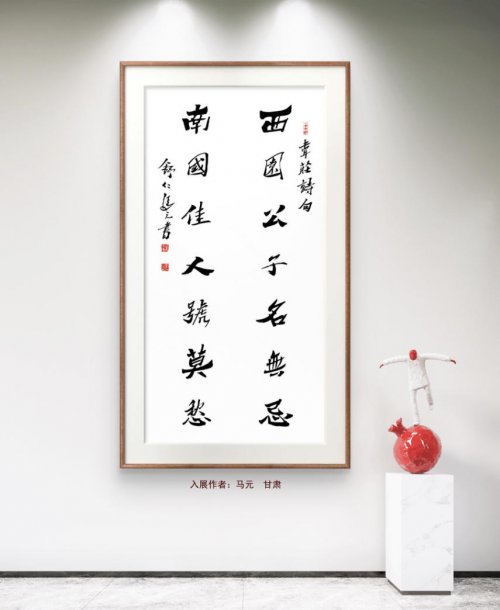 韋莊詩句
西園公子名無忌
南國佳人號莫愁
仁馬元書
入展作者：马元 甘肃